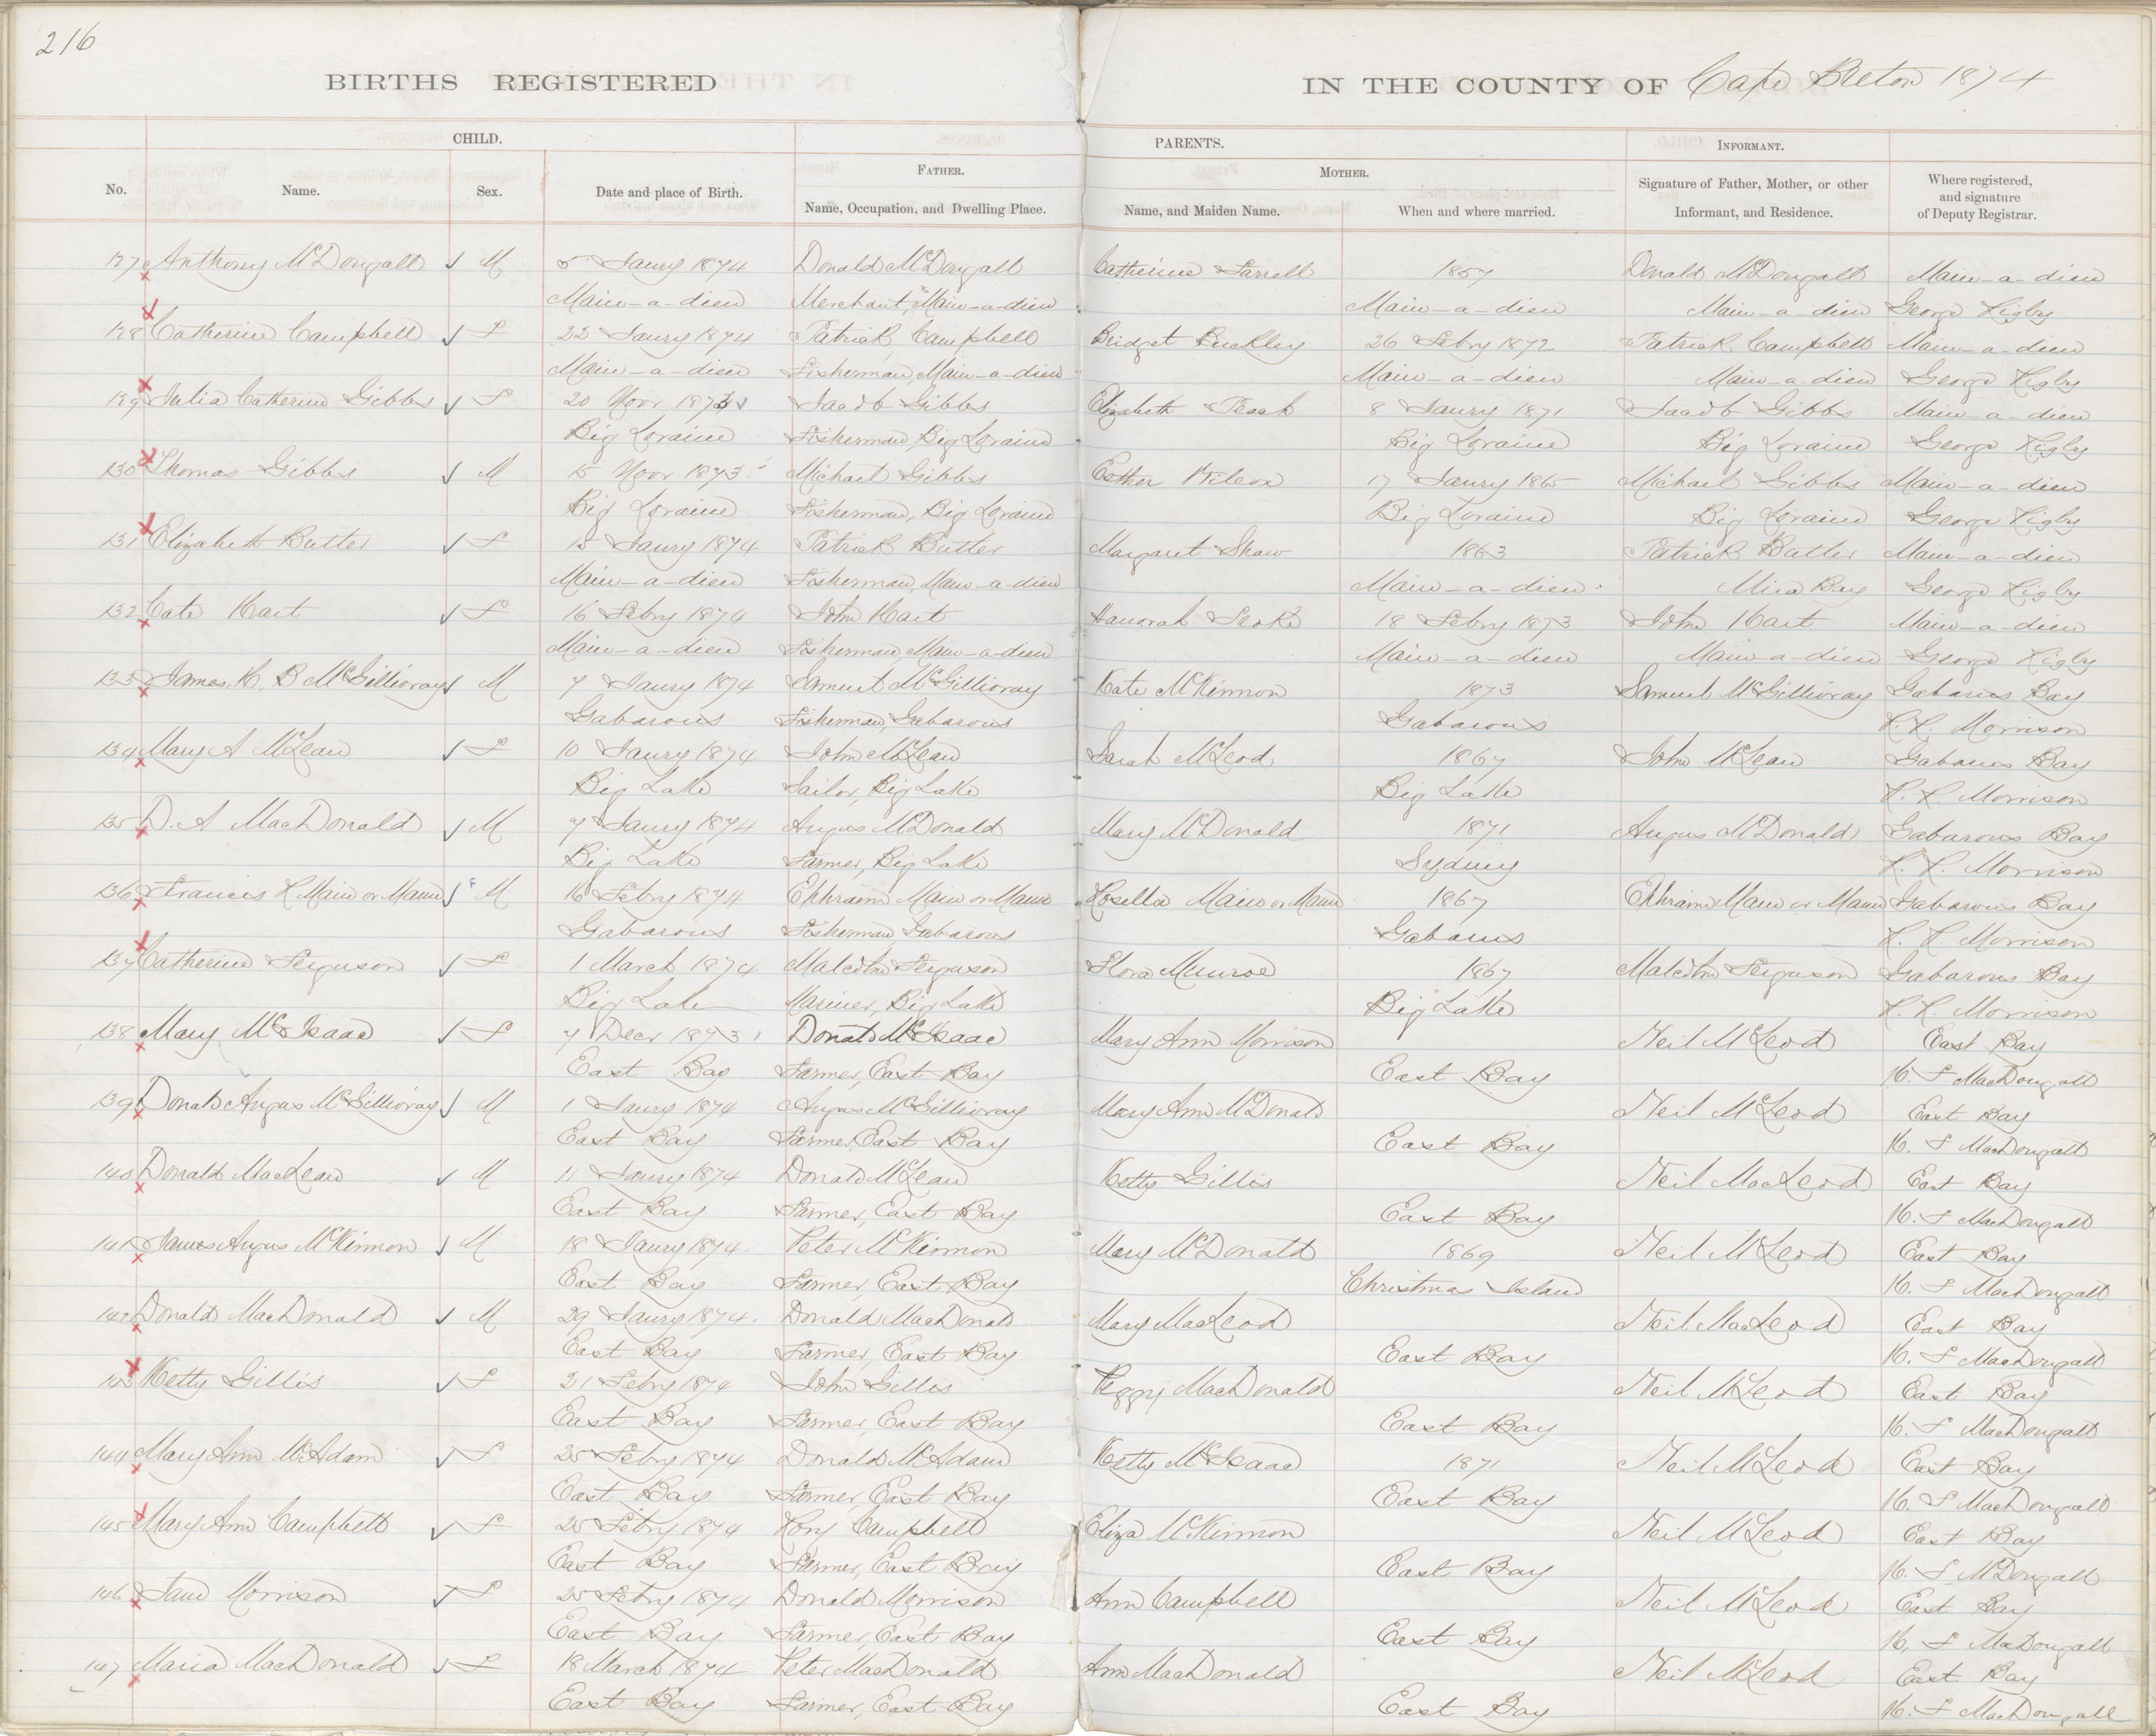 216
BIRTHS REGISTERED IN THE COUNTY OF Cape Breton 1874
CHILD. PARENTS. INFORMANT.
FATHER. MOTHER.
No. Name. Sex. Date and place of Birth. Name, Occupation, and Dwelling Place. Name, and Maiden Name. When and where married. Signature of Father, Mother, or other Informant, and Residence. Where registered, and signature of Deputy Registrar.
127 Anthony McDougall M 5 Jaury 1874 Donald McDougall Catherine Farrell 1857 Donald McDougall Main-a-dieu
Main-a-dieu Merchant, Main-a-dieu Main-a-dieu Main-a-dieu George Rigby
128 Catherine Campbell F 22 Jaury 1874 Patrick Campbell Bridget Buckley 26 Febry 1872 Patrick Campbell Main-a-dieu
Main-a-dieu Fisherman, Main-a-dieu Main-a-dieu Main-a-dieu George Rigby
129 Julia Catherine Gibbs F 20 Novr 1873 Jacob Gibbs Elizabeth 8 Jaury 1871 Jacob Gibbs Main-a-dieu
Big Loraine Fisherman, Big Loraine Big Loraine Big Loraine George Rigby
130 Thomas Gibbs M 15 Novr 1873 Michael Gibbs Esther Wilcox 17 Jaury 1865 Michael Gibbs Main-a-dieu
Big Loraine Fisherman, Big Loraine Big Loraine Big Loraine George Rigby
131 Elizabeth Butler F 15 Jaury 1874 Patrick Butler Margaret Shaw 1863 Patrick Butler Main-a-dieu
Main-a-dieu Fisherman, Main-a-dieu Main-a-dieu Mira Bay George Rigby
132 Cate Hart F 16 Febry 1874 John Hart Hanorah 18 Febry 1873 John Hart Main-a-dieu
Main-a-dieu Fisherman, Main-a-dieu Main-a-dieu Main-a-dieu George Rigby
133 James, H, B McGillivray M 7 Jaury 1874 Samuel McGillivray Kate McKinnon 1873 Samuel McGillivray Gabarus Bay
Gabarous Fisherman, Gabarous Gabarous R. R. Morrison
134 Mary A McLean F 10 Jaury 1874 John McLean Sarah McLeod 1867 John McLean Gabarus Bay
Big Lake Sailor, Big Lake Big Lake R. R. Morrison
135 D. A MacDonald M 7 Jaury 1874 Angus McDonald Mary McDonald 1871 Angus McDonald Gabarous Bay
Big Lake Farmer, Big Lake Sydney R. R. Morrison
136 Francis R Main or Mann F M 16 Febry 1874 Ephraim Main or Mann Rosella Main or Mann 1867 Ephraim Main or Mann Gabarous Bay
Gabarous Fisherman Gabarous Gabarus R. R. Morrison
137 Catherine Ferguson F 1 March 1874 Malcolm Ferguson Flora Munroe 1867 Malcolm Ferguson Gabarous Bay
Big Lake Mariner, Big Lake Big Lake R. R. Morrison
138 Mary McIsaac F 7 Decr 1873 Donald McIsaac Mary Ann Morrison Neil McLeod East Bay
East Bay Farmer, East Bay East Bay H. F MacDougall
139 Donald Angus McGillivray M 1 Jaury 1874 Angus McGillivray Mary Ann McDonald Neil McLeod East Bay
East Bay Farmer, East Bay East Bay H. F MacDougall
140 Donald MacLean M 11 Jaury 1874 Donald McLean Ketty Gillis Neil MacLeod East Bay
East Bay Farmer, East Bay East Bay H. F MacDougall
141 James Angus McKinnon M 18 Jaury 1874. Peter McKinnon Mary McDonald 1869 Neil McLeod East Bay
East Bay Farmer, East Bay Christmas Island H. F MacDougall
142 Donald MacDonald M 29 Jaury 1874. Donald MacDonald Mary MacLeod Neil MacLeod East Bay
East Bay Farmer, East Bay East Bay H. F MacDougall
143 Ketty Gillis F 21 Febry 1874 John Gillis Peggy MacDonald Neil McLeod East Bay
East Bay Farmer, East Bay East Bay H. F MacDougall
144 Mary Ann McAdam F 25 Febry 1874 Donald McAdam Ketty McIsaac 1871 Neil McLeod East Bay
East Bay Farmer, East Bay East Bay H. F MacDougall
145 Mary Ann Campbell F 25 Febry 1874 Rory Campbell Eliza McKinnon Neil McLeod East Bay
East Bay Farmer, East Bay East Bay H. F McDougall
146 Jane Morrison F 25 Febry 1874 Donald Morrison Ann Campbell Neil McLeod East Bay
East Bay Farmer, East Bay East Bay H. F MacDougall
147 Maria MacDonald F 18 March 1874 Peter MacDonald Ann MacDonald Neil McLeod East Bay
East Bay Farmer, East Bay East Bay H. F MacDougall